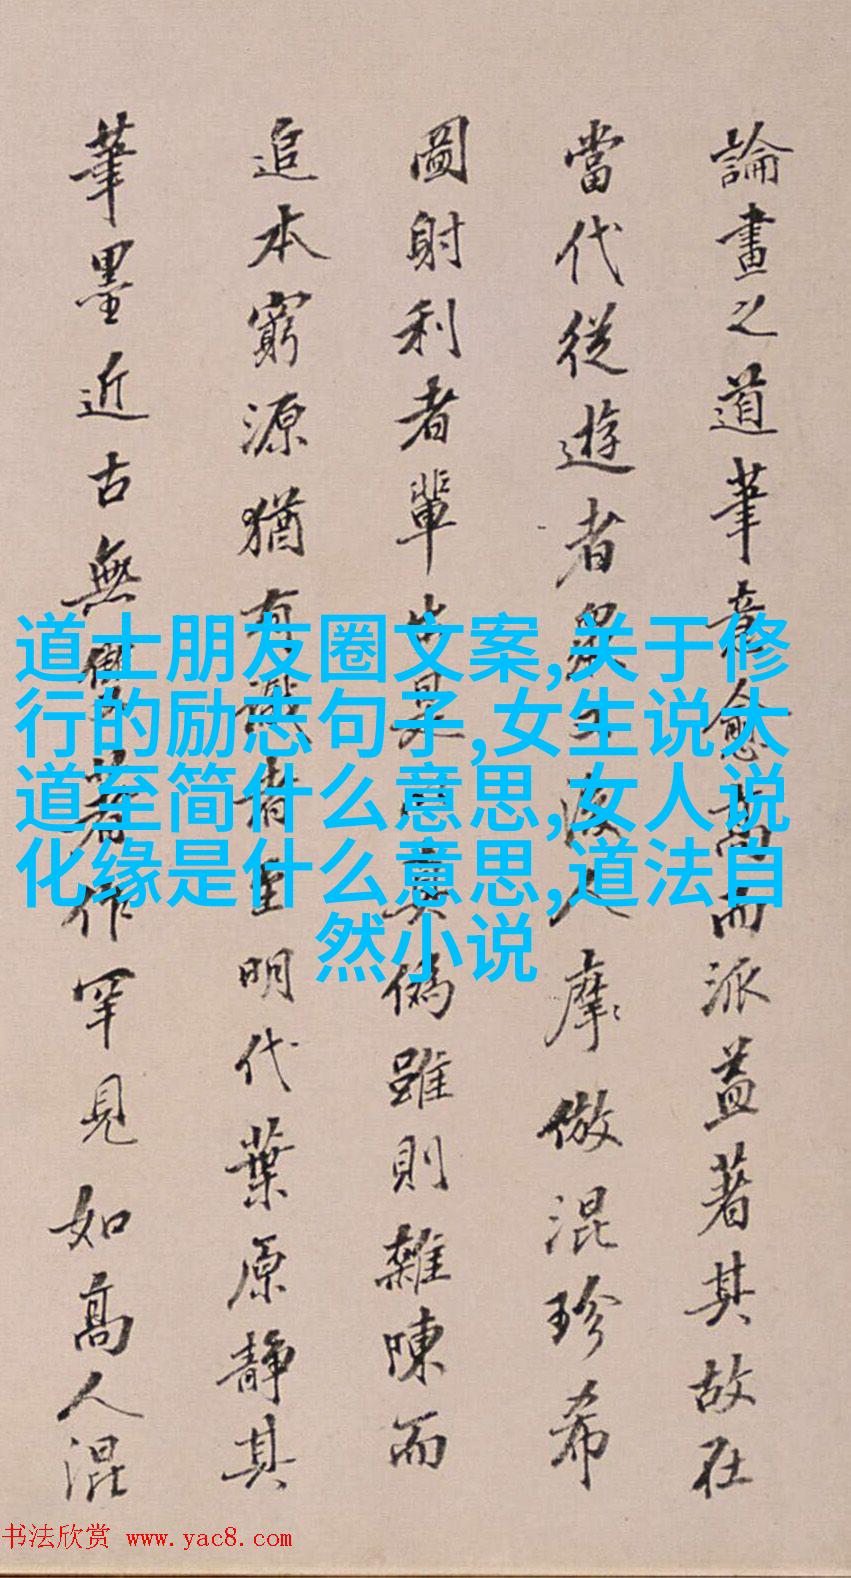 論畫之道筆意愈高而派益著其故在
當代從遊者眾後人摩倣混珍希
圖射利者輩出是真偽雖則雜陳而
追本窮源猶有識者至明代葉原靜其
筆墨近古無著作罕見如高人混
道士朋友圈文案,关于修
行的励志句子,女生说大
道至简什么意思,女人说
化缘是什么意思,道法自
然小说
书法欣赏 www.yac8.com